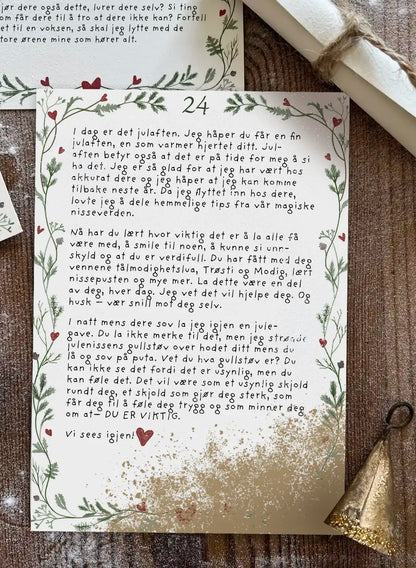 gjør dere også dette, lurer dere selv? Si ting
som får dere til å tro at dere ikke kan? Fortell
det til en voksen, så skal jeg lytte med de
store ørene mine som hører alt.
24
I dag er det julaften. Jeg håper du får en fin
julaften, en som varmer hjertet ditt. Jul-
aften betyr også at det er på tide for meg å si
ha det. Jeg er så glad for at jeg har vært hos
akkurat dere og jeg håper at jeg kan komme
tilbake neste år. Da jeg flyttet inn hos dere,
lovte jeg å dele hemmelige tips fra vår magiske
nisseverden.
Nå har du lært hvor viktig det er å la alle få
være med, å smile til noen, å kunne si unn-
skyld og at du er verdifull. Du har fått med deg
vennene tålmodighetslua, Trøsti og Modig, lært
nissepusten og mye mer. La dette være en del
av deg, hver dag. Jeg vet det vil hjelpe deg. Og
husk – vær snill mot deg selv.
I natt mens dere sov la jeg igjen en jule-
gave. Du la ikke merke til det, men jeg strødde
julenissens gullstøv over hodet ditt mens du
lå og sov på puta. Vet du hva gullstøv er? Du
kan ikke se det fordi det er usynlig, men du
kan føle det. Det vil være som et usynlig skjold
rundt deg, et skjold som gjør deg sterk, som
får deg til å føle deg trygg og som minner deg
om at– DU ER VIKTIG.
Vi sees igjen!